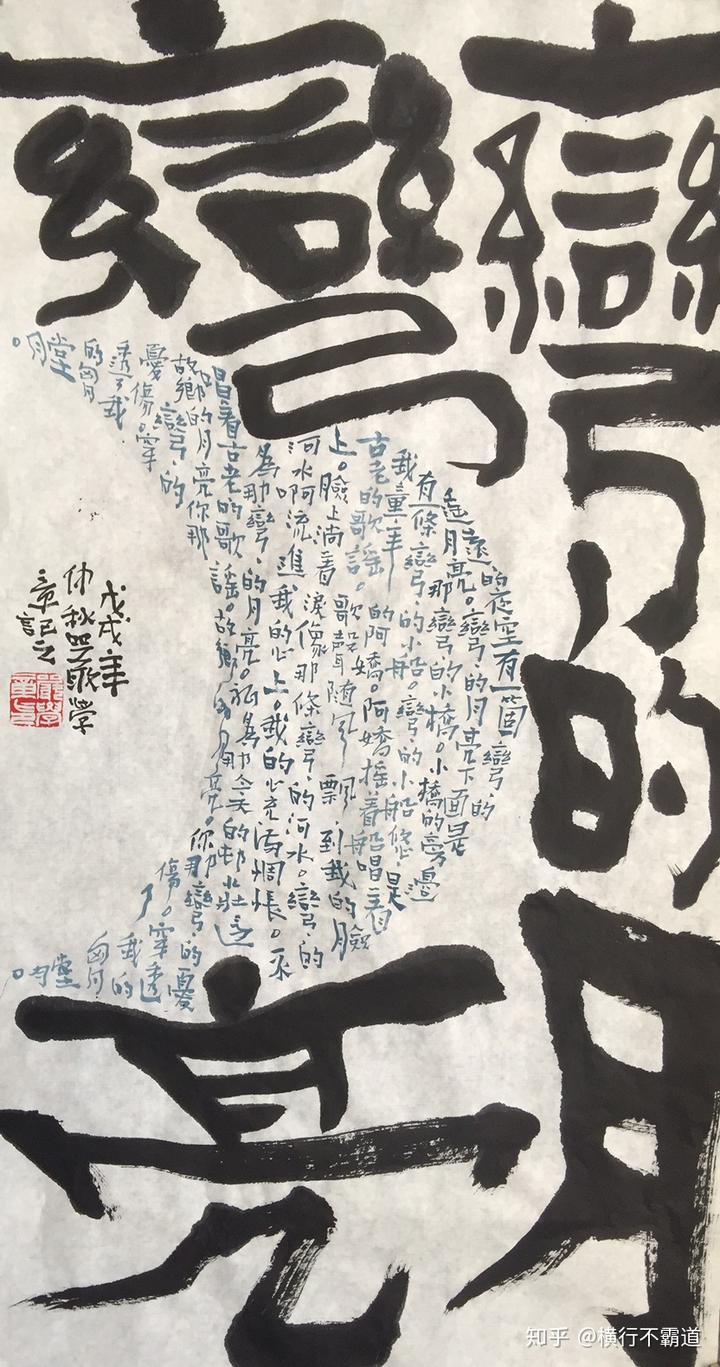 彎彎的月亮
遙遠的夜空有一箇彎彎的
月亮。彎彎的月亮下面是
那彎彎的小橋。小橋的旁邊
有一條彎彎的小船。彎彎的小船悠悠是
我童年的阿嬌。阿嬌搖着船唱着
古老的歌謠。歌聲随風飄到我的臉
上。臉上淌着淚像那條彎彎的河水。彎彎的
河水啊流進我的心上。我的心充滿惆悵。不
為那彎彎的月亮。祇為那今天的邨莊還
唱着古老的歌謠。故鄉的月亮。你那彎彎的憂
傷。穿透了我的胸膛。
故鄉的月亮你那彎彎的
憂傷。穿
透了我
的胸膛。
戊戌年
仲秋 學
章
知乎 @横行不霸道